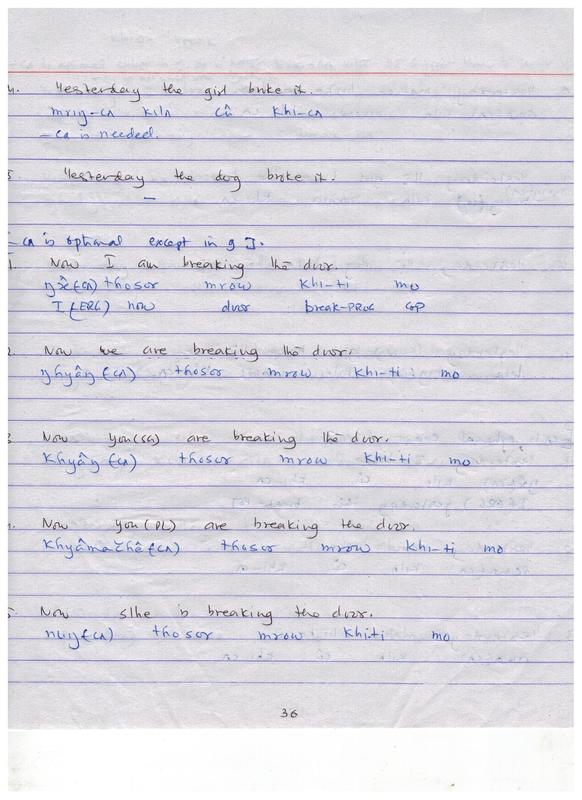 4. Yesterday the girl broke it.
mriŋ-ca kiln cû khi-ca
-ca is needed.
5. Yesterday the dog broke it.
–
-ca is optional except in g ].
1. Now I am breaking the door.
thosor mrow khi-ti mo
I (ERG) now door break-PROG COP
2. Now we are breaking the door.
(ca) thosor mrow khi-ti mo
3 Now you(SG) are breaking the door.
(ca) thosor mrow khi-ti mo
4. Now you(PL) are breaking the door.
(ca) thosor mrow khi-ti mo
5. Now s/he is breaking the door.
(ca) thosor mrow khi-ti mo
36